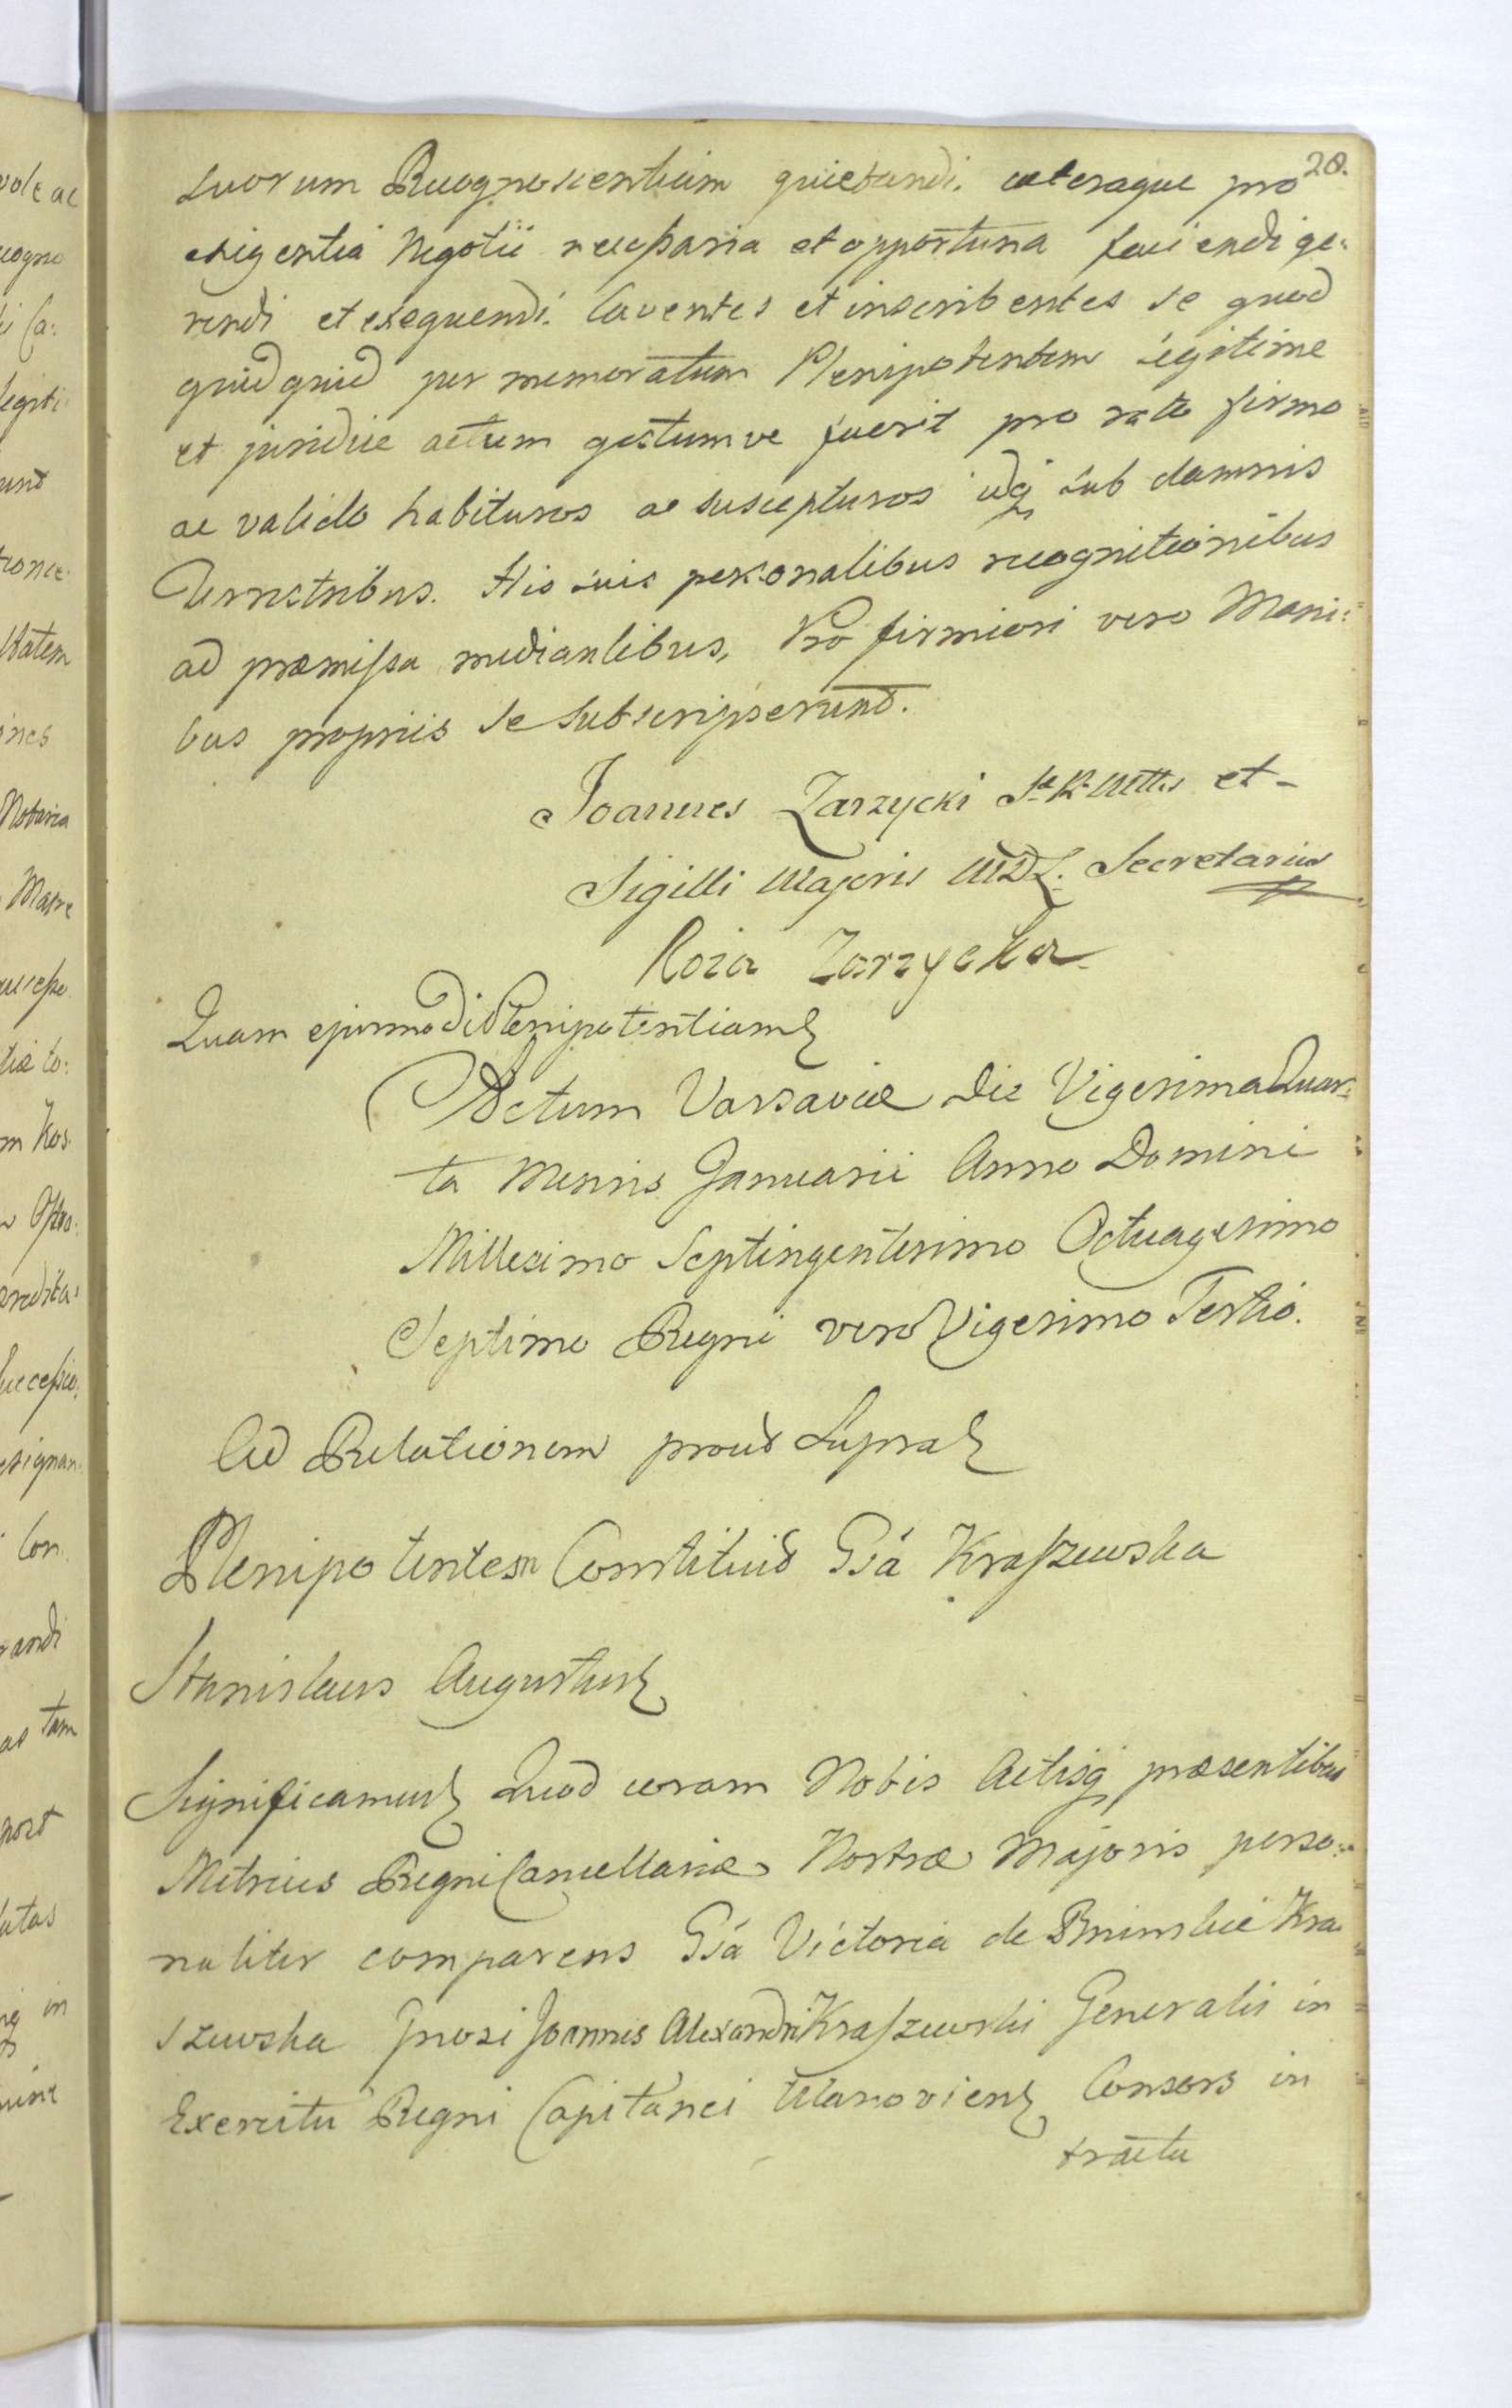 20.
suorum Recognoscentium quietandi. cæteraque pro
exigentia Negotii necessaria et opportuna faciendi ge:
rendi et exequendi. Caventes et inscribentes se quod
quidquid per memoratum Plenipotentem legitime
et juridice actum gestumve fuerit pro rato firmo
ac valido habituros ac suscepturos idq sub damnis
terrestribus. His suis personalibus recognitionibus
ad præmissa mediantibus, Pro firmiori vero Mani:
bus propriis se subscripserunt.
Joannes Zarzycki et
Sigilli Majoris MDL. Secretarius
Roża Zarzycka
Quam ejusmodi Plenipotentiam
Actum Varsaviæ die Vigesima Quar:
ta Mensis Januarii Anno Domini
Millesimo Septingentesimo Octuagesimo
Septimo Regni vero Vigesimo Tertio.
Ad Relationem prout supra
Plenipotentem Constituit Gsa Kraszewska
Stanislaus Augustus
Significamus Quod coram Nobis Actisq præsentibus
Metrices Regni Cancellariæ Nostræ Majoris perso:
naliter comparens Gsa Victoria de Bninskie Kra
szewska Gnosi Joannis Alexandri Kraszewski Generalis in
Exercitu Regni Capitanei Consors in
tractu